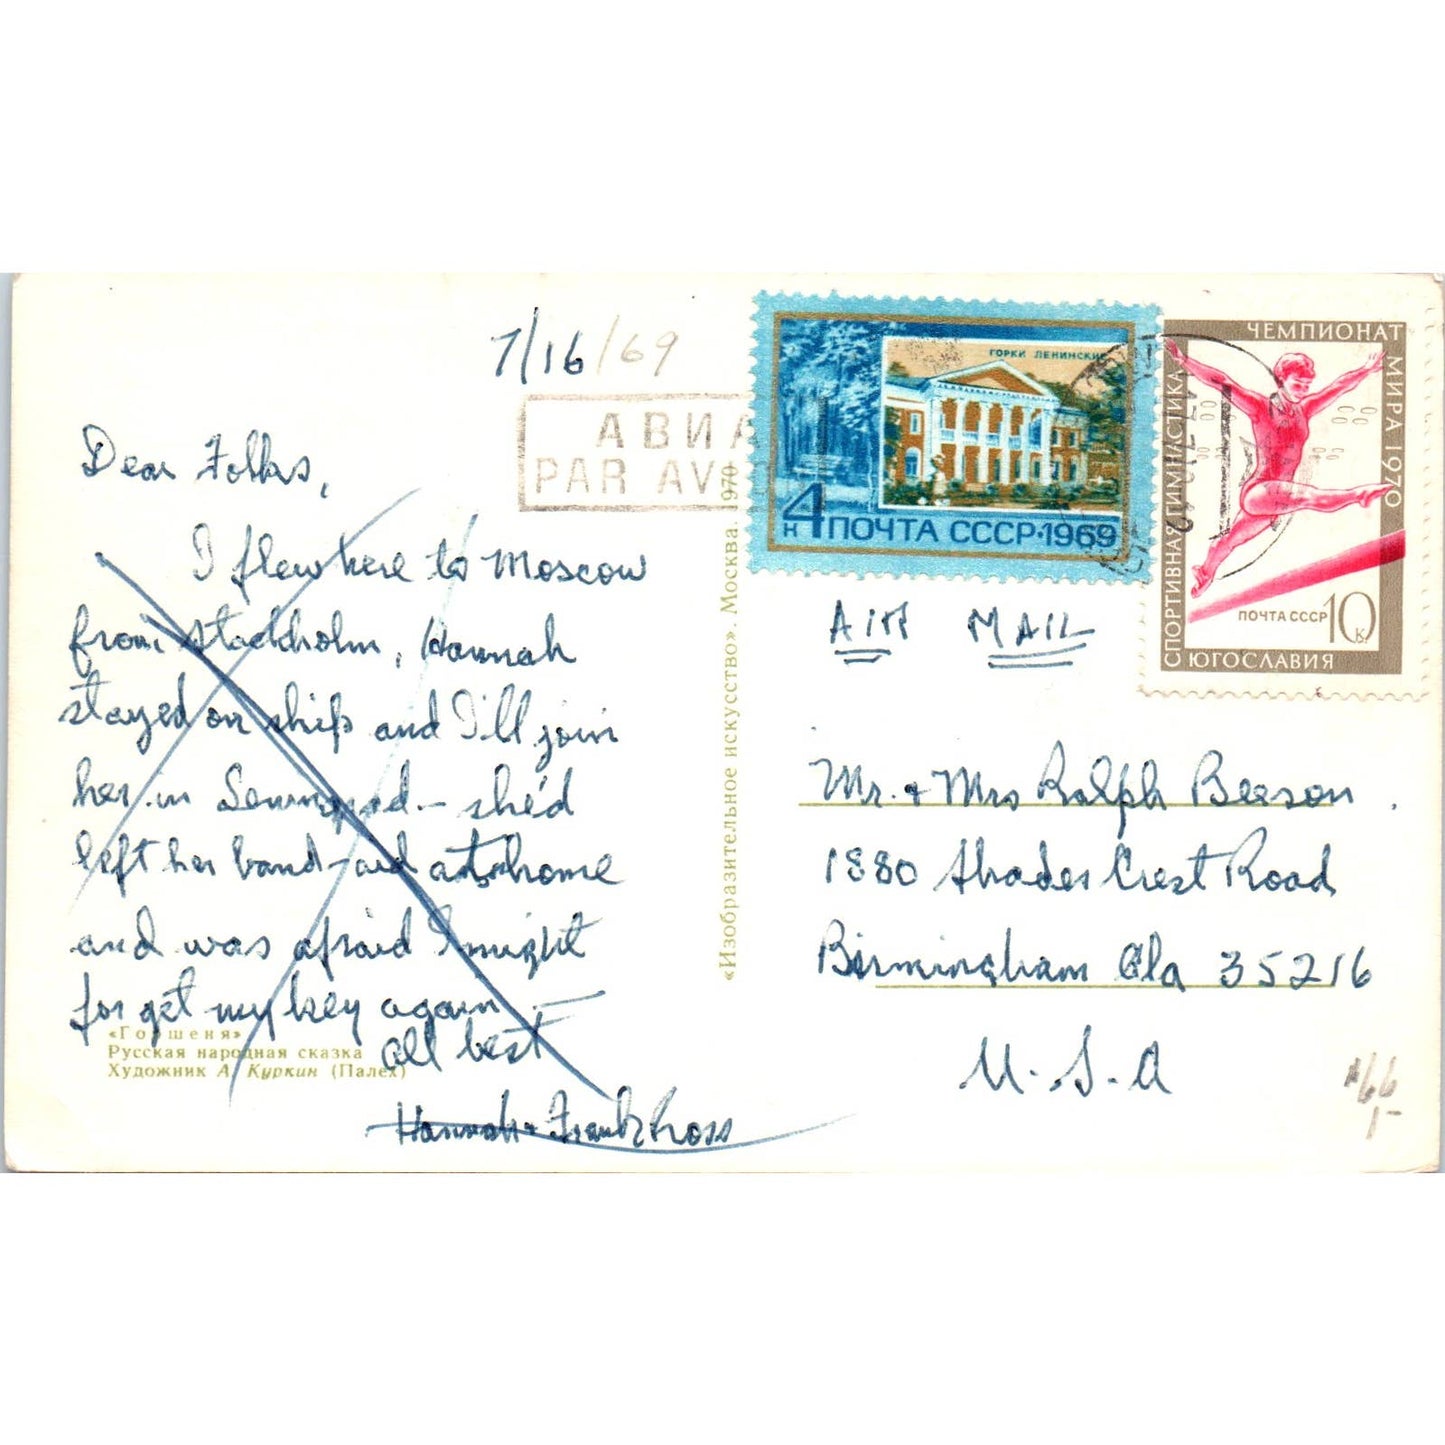 7/16/69
АВИА
PAR AV
Dear Folks,
I flew here to Moscow
from Stockholm, Hannah
stayed on ship and I'll join
her in Leningrad – she'd
left her band-aid at home
and was afraid I might
forget my key again –
all best
Hannah + Frank Ross
«Горшеня»
Русская народная сказка
Художник А. Куркин (Палех)
«Изобразительное искусство». Москва. 1970
ГОРКИ ЛЕНИНСКИЕ
4 к ПОЧТА СССР·1969
ЧЕМПИОНАТ МИРА 1970
СПОРТИВНАЯ ГИМНАСТИКА
ПОЧТА СССР 10 к.
ЮГОСЛАВИЯ
AIR MAIL
Mr. + Mrs Ralph Beeson.
1880 Shades Crest Road
Birmingham Ala 35216
U.S.A
#66
1-